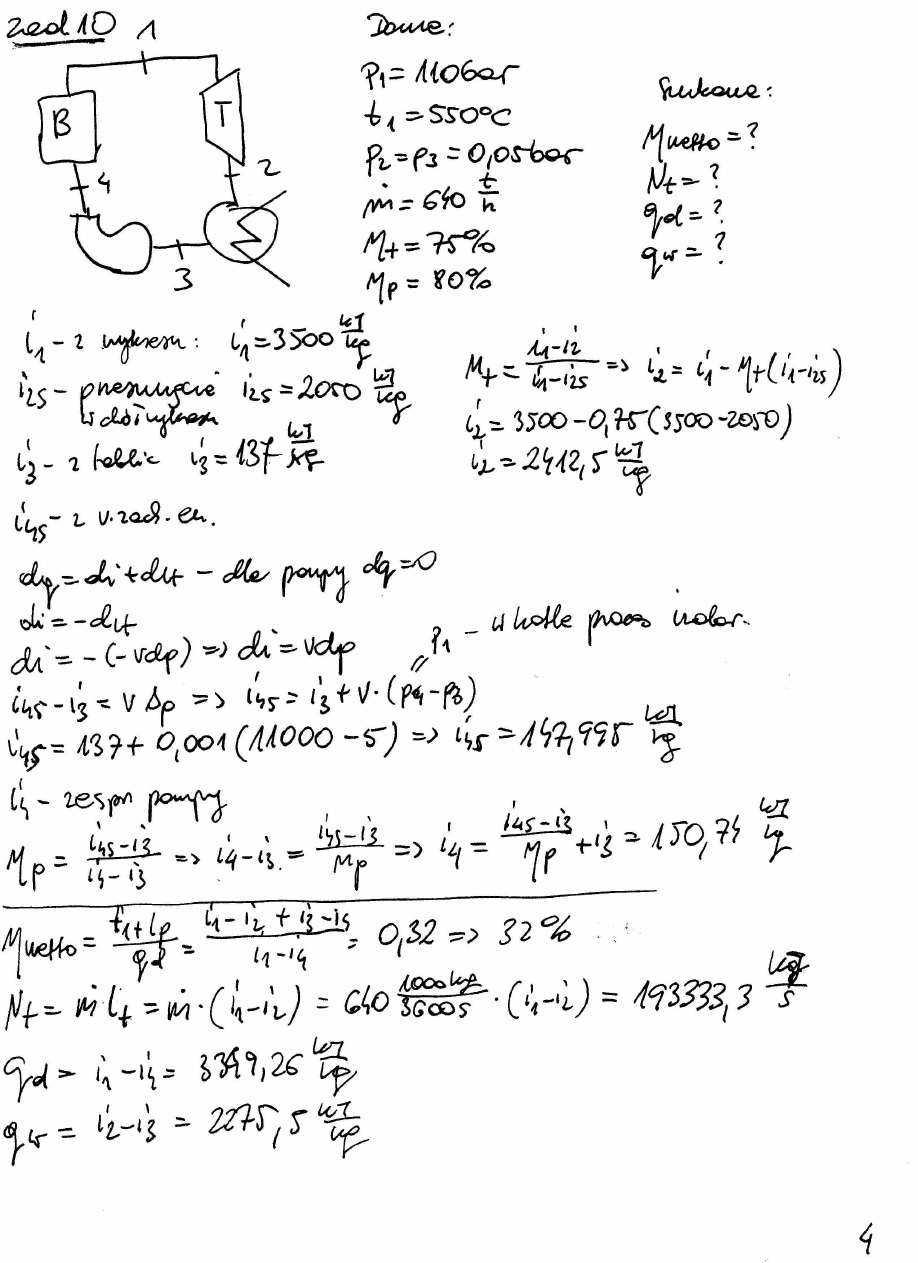 zad 10
1
B
T
2
4
3
Dane:
p1 = 110bar
t1 = 550°C
p2 = p3 = 0,05bar
ṁ = 640 t/h
ηt = 75%
ηp = 80%
Szukane:
ηnetto = ?
Nt = ?
qd = ?
qw = ?
i1 - z wykresu: i1 = 3500 kJ/kg
i2s - przesunięcie i2s = 2050 kJ/kg
w dół wykresu
i3 - z tablic i3 = 137 kJ/kg
ηt = (i1-i2)/(i1-i2s) => i2 = i1 - ηt(i1-i2s)
i2 = 3500 - 0,75(3500-2050)
i2 = 2412,5 kJ/kg
i4s - z r. zach. en.
dq = di + dlt - dla pompy dq = 0
di = -dlt
di = -(-vdp) => di = vdp
p1 - w kotle proces izobar.
i4s - i3 = v Δp => i4s = i3 + v·(p4-p3)
i4s = 137 + 0,001(11000-5) => i4s = 147,995 kJ/kg
i4 - ze spr pompy
ηp = (i4s-i3)/(i4-i3) => i4-i3 = (i4s-i3)/ηp => i4 = (i4s-i3)/ηp + i3 = 150,74 kJ/kg
ηnetto = (lt+lp)/qd = (i1-i2+i3-i4)/(i1-i4) = 0,32 => 32%
Nt = ṁ lt = ṁ·(i1-i2) = 640 1000kg/3600s · (i1-i2) = 193333,3 kJ/s
qd = i1-i4 = 3349,26 kJ/kg
qw = i2-i3 = 2275,5 kJ/kg
4